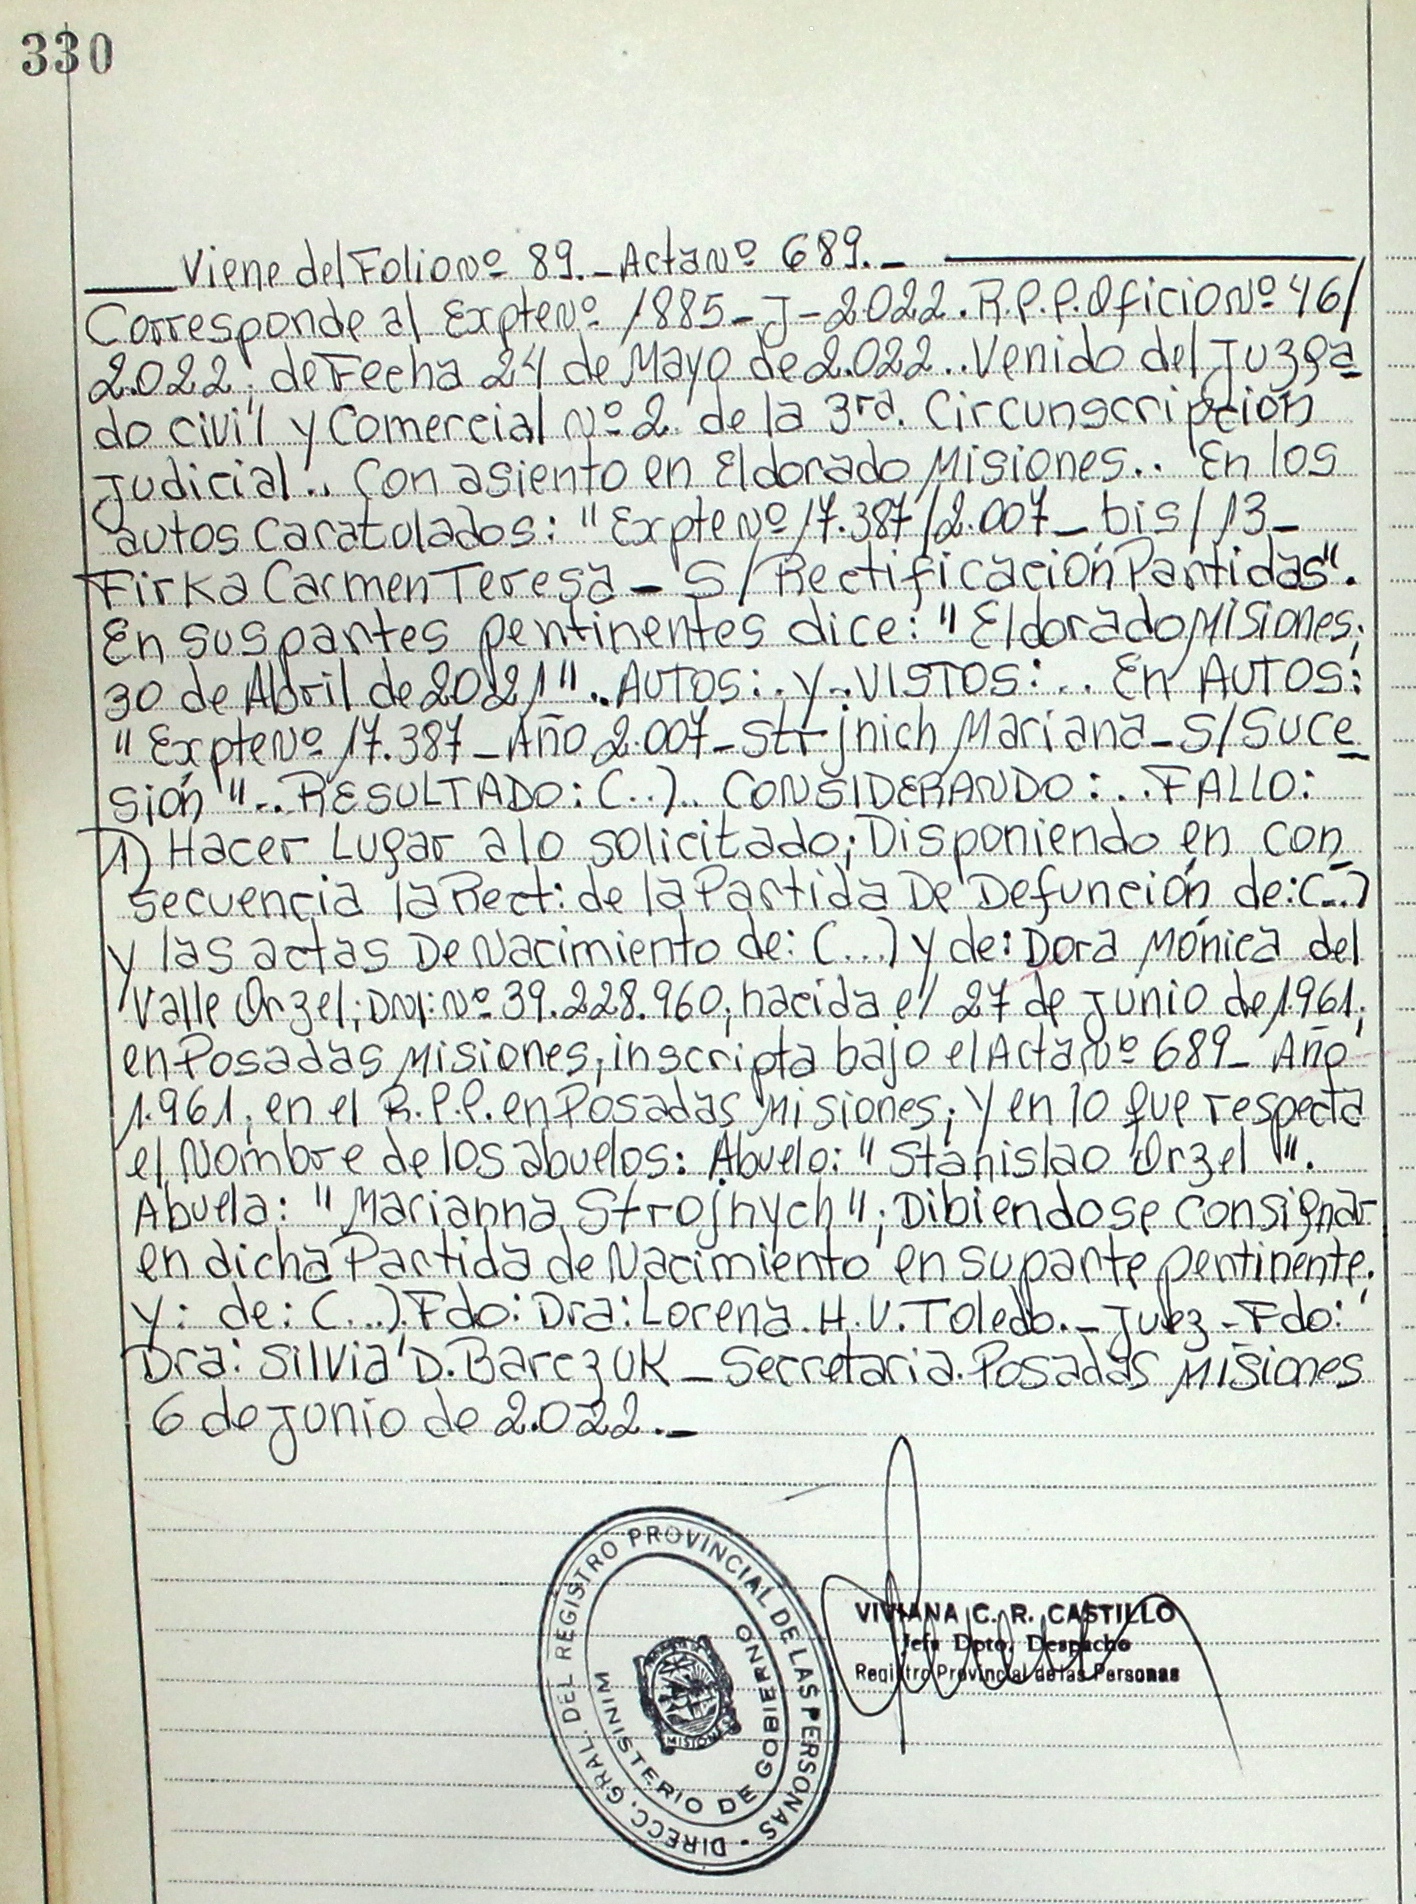 330
Viene del Folio Nº 89._ Acta Nº 689._
Corresponde al Expte Nº 1885_J_2022. R.P.P. Oficio Nº 46/
2.022, de Fecha 24 de Mayo de 2.022.. Venido del Juzga
do civil y Comercial Nº 2 de la 3ra. Circunscripción
Judicial.. Con asiento en Eldorado Misiones.. En los
autos Caratulados: "Expte Nº 17.387/2.007_ bis/13_
Firka Carmen Teresa _ S/Rectificación Partidas".
En sus partes pertinentes dice: "Eldorado Misiones,
30 de Abril de 2.021". AUTOS:.y.VISTOS:.. En AUTOS:
"Expte Nº 17.387_Año 2.007_Strjnich Mariana_S/Suce
sión".. RESULTADO: (..).. CONSIDERANDO:...FALLO:
1) Hacer Lugar a lo solicitado; Disponiendo en con
secuencia la Rect: de la Partida De Defunción de:(...)
y las actas De Nacimiento de: (...) y de: Dora Mónica del
Valle Orzel; DNI: Nº 39.228.960, nacida el 27 de Junio de 1961,
en Posadas Misiones, inscripta bajo el Acta Nº 689_ Año
1.961, en el R.P.P. en Posadas Misiones; y en lo que respecta
el Nombre de los abuelos: Abuelo: "Stanislao Orzel".
Abuela: "Marianna Strojnych"; Dibiendose consignar
en dicha Partida de Nacimiento en su parte pertinente.
y: de: (...). Fdo: Dra: Lorena H.V. Toledo._ Juez_Fdo:
Dra: Silvia D. Barczuk_Secretaria. Posadas Misiones
6 de Junio de 2.022._
DIRECC. GRAL. DEL REGISTRO PROVINCIAL DE LAS PERSONAS
MINISTERIO DE GOBIERNO
MISIONES
VIVIANA C. R. CASTILLO
Jefa Dpto. Despacho
Registro Provincial de las Personas